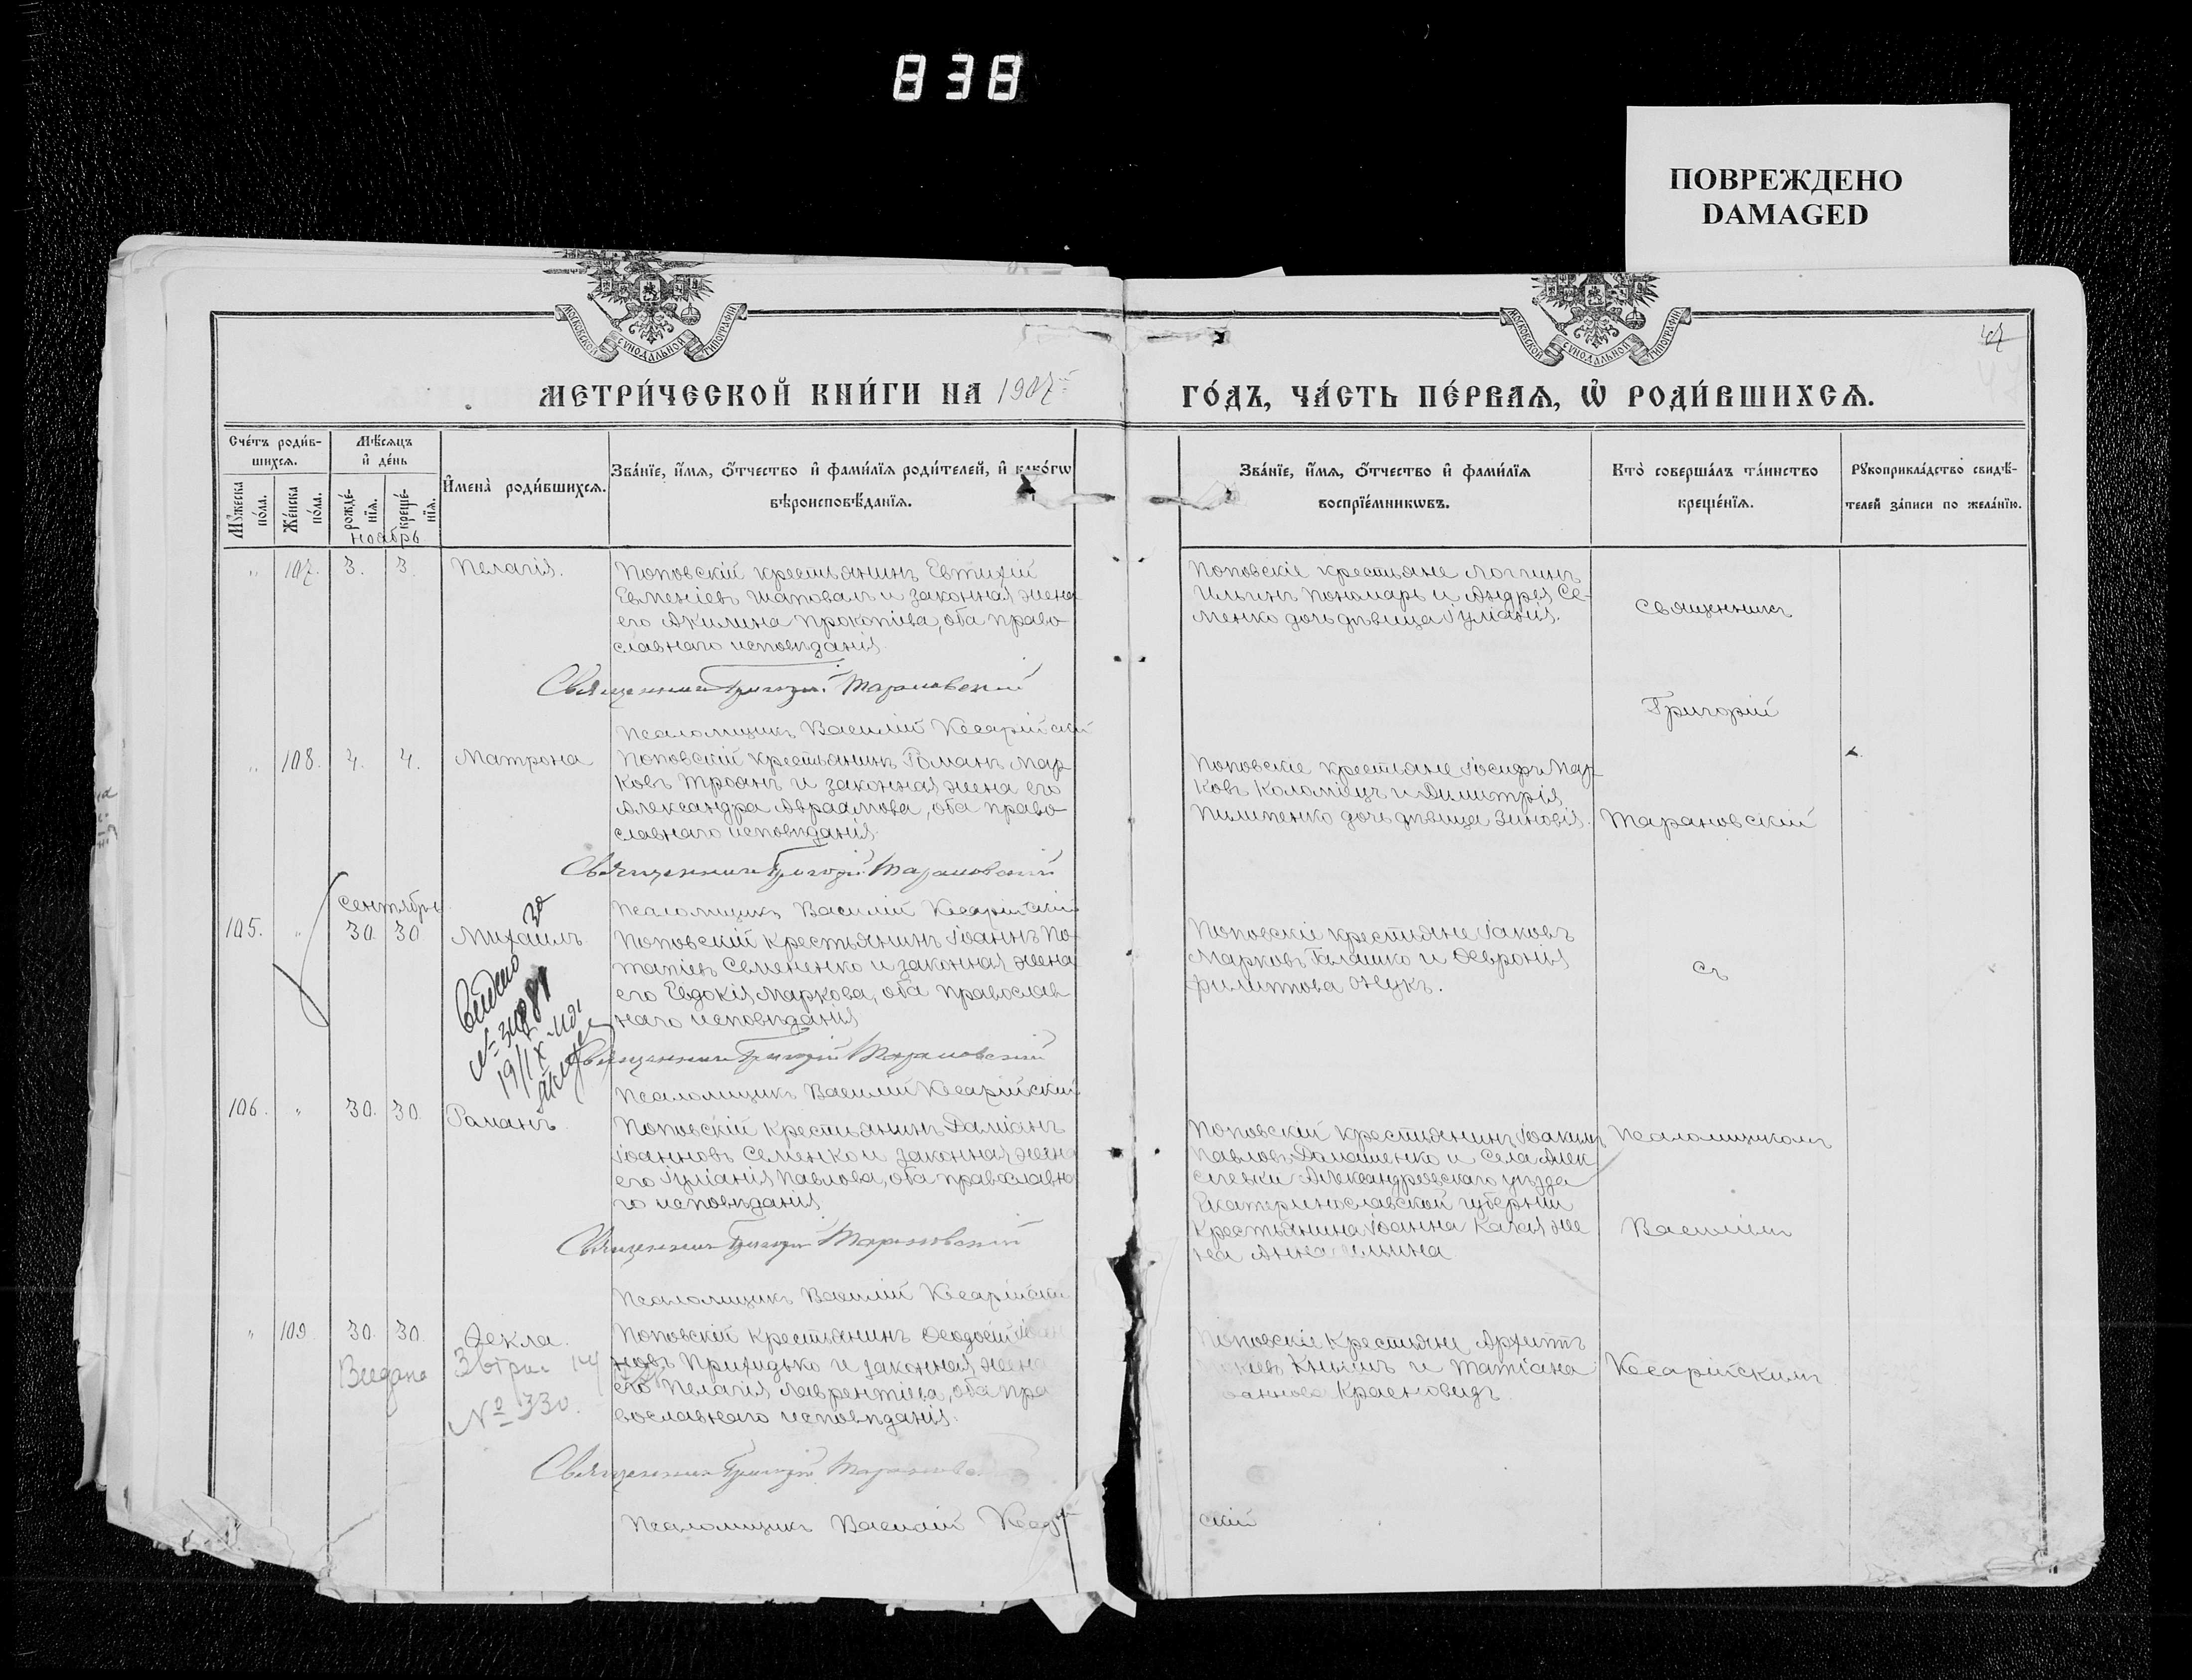 838
ПОВРЕЖДЕНО
DAMAGED
МОСКОВСКОЙ СѴНОДАЛЬНОЙ ТИПОГРАФІИ
МОСКОВСКОЙ СѴНОДАЛЬНОЙ ТИПОГРАФІИ
47
МЕТРИ́ЧЕСКОЙ КНИ́ГИ НА 1907й
ГО́ДЪ, ЧА́СТЬ ПЕ́РВАѦ, Ѡ҆ РОДИ́ВШИХСѦ.
Сче́тъ роди́в-
шихсѧ.
Мꙋ́жеска
по́ла.
Же́нска
по́ла.
Мѣ́сѧцъ
и҆ де́нь
рожде́-
нїѧ.
креще́-
нїѧ.
И҆мена̀ роди́вшихсѧ.
Зва́нїе, и҆́мѧ, ѻ҆́тчество и҆ фами́лїѧ роди́телей, и҆ како́гѡ
вѣроисповѣ́данїѧ.
Зва́нїе, и҆́мѧ, ѻ҆́тчество и҆ фами́лїѧ
воспрїе́мникѡвъ.
Кто̀ соверша́лъ та́инство
креще́нїѧ.
Рꙋкоприкла́дство свидѣ́-
телей за́писи по жела́нїю.
Ноябрь
" 107. 3. 3. Пелагія.
Поповскій крестьянинъ Евтихій
Евменіевъ Шаповалъ и законная жена
его Акилина Прокопіева, оба право-
славнаго исповѣданія.
Священникъ Григорій Тарановский
Псаломщикъ Василій Кесарійскій
Поповскіе крестьяне Логгинъ
Ильинъ Пономарь и Андрея Се-
менко дочь дѣвица Іуліанія.
Священникъ
Григорій
" 108. 4. 4. Матрона
Поповскій крестьянинъ Романъ Мар-
ковъ Троянъ и законная жена его
Александра Авраамова, оба право-
славнаго исповѣданія.
Священникъ Григорій Тарановский
Псаломщикъ Василій Кесарійскій
Поповскіе крестьяне Іосифъ Мар-
ковъ Коломіецъ и Димитрія
Пилипенко дочь дѣвица Зиновія.
Тарановскій
Сентябрь
105. " 30. 30 Михаилъ
Поповскій крестьянинъ Іоаннъ По-
тапіевъ Семененко и законная жена
его Евдокія Маркова, оба православ-
наго исповѣданія
Священникъ Григорій Тарановский
Псаломщикъ Василій Кесарійскій
Поповскіе крестьяне Іаковъ
Марковъ Галашко и Февронія
Филиппова Онукъ.
съ
106. " 30. 30. Романъ
Поповскій крестьянинъ Даміанъ
Іоанновъ Семенко и законная жена
его Іуліанія Павлова, оба православна-
го исповѣданія
Священникъ Григорій Тарановский
Псаломщикъ Василій Кесарійскій
Поповскій крестьянинъ Іоакимъ
Павловъ Далашенко и села Алек-
сѣевки Александровскаго уѣзда
Екатеринославской губерніи
крестьянина Іоанна жe
на Анна
Псаломщикомъ
Василіемъ
" 109 30. 30. Ѳекла.
Поповскій крестьянинъ Ѳеодосій Іоан
новъ Приходько и законная жена
его Пелагія Лаврентіева, оба пра
вославнаго исповѣданія.
Видана
№ 330.
Священникъ Григорій Тарановский
Псаломщикъ Василій Кесарій
скій
Поповскіе крестьяне Архипъ
Книшъ и Татіана
Красновидъ
Кесарійскимъ